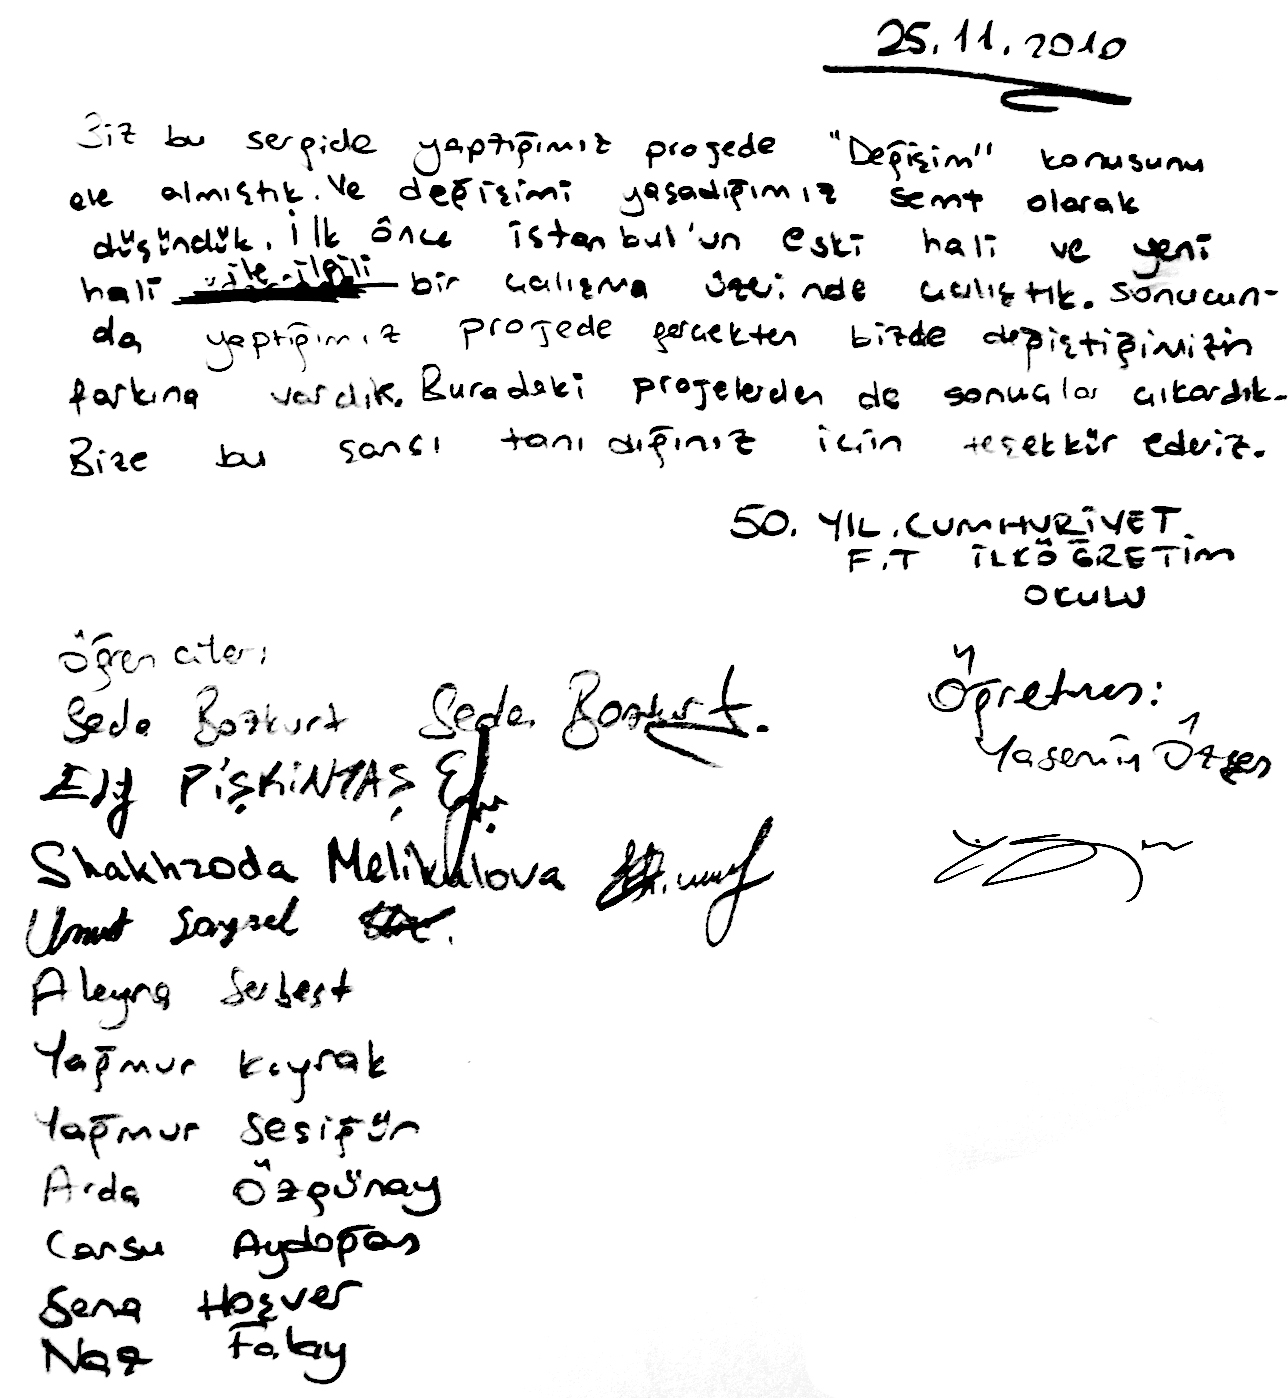 25.11.2010
Biz bu sergide yaptığımız projede "Değişim" konusunu
ele almıştık. Ve değişimi yaşadığımız semt olarak
düşündük. İlk önce İstanbul'un eski hali ve yeni
hali ile ilgili bir çalışma üzerinde çalıştık. Sonucun-
da yaptığımız projede gerçekten bizde değiştiğimizin
farkına vardık. Buradaki projelerden de sonuçlar çıkardık.
Bize bu şansı tanıdığınız için teşekkür ederiz.
50. YIL.CUMHURİYET.
F.T İLKÖĞRETİM
OKULU
Öğrenciler:
Seda Bozkurt Seda Bozkurt.
Elif PİŞKİNTAŞ
Shakhzoda Melikulova
Umut Saysel
Aleyna Serbest
Yağmur Kıyrak
Yağmur Sesigün
Arda Özgünay
Cansu Aydoğan
Sena Hoşver
Naz Falay
Öğretmen:
Yasemin